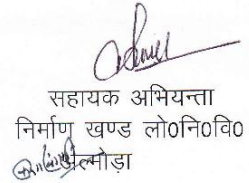 सहायक अभियन्ता
निर्माण खण्ड लो0नि0वि0
अल्मोड़ा